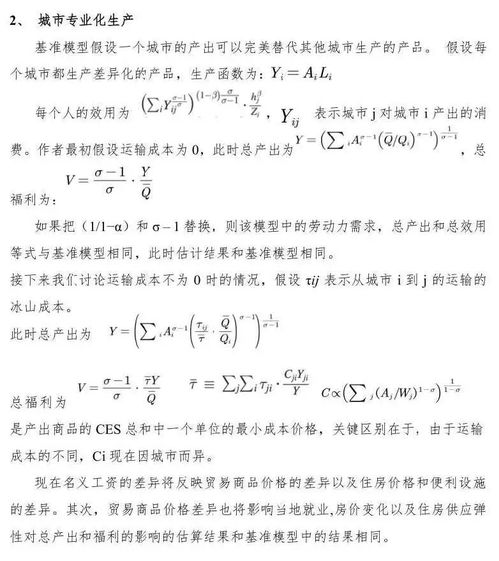 2、 城市专业化生产
基准模型假设一个城市的产出可以完美替代其他城市生产的产品。 假设每
个城市都生产差异化的产品，生产函数为：Y_i = A_i L_i
每个人的效用为 (∑_i Y_{ij}^{\frac{σ-1}{σ}})^{(1-β)\frac{σ}{σ-1}} · \frac{h_j^β}{Z_i} ，Y_{ij} 表示城市 j 对城市 i 产出的消
费。作者最初假设运输成本为 0，此时总产出为 Y = (∑_i A_i^{σ-1} (\bar{Q}/Q_i)^{σ-1})^{\frac{1}{σ-1}} ，总
福利为： V = \frac{σ-1}{σ} · \frac{Y}{\bar{Q}}
如果把（1/1-α）和 σ – 1 替换，则该模型中的劳动力需求，总产出和总效用
等式与基准模型相同，此时估计结果和基准模型相同。
接下来我们讨论运输成本不为 0 时的情况，假设 τij 表示从城市 i 到 j 的运输的
冰山成本。
此时总产出为 Y = (∑_i A_i^{σ-1} (\frac{τ_{ij}}{\bar{τ}} · \frac{\bar{Q}}{Q_i})^{σ-1})^{\frac{1}{σ-1}}
总福利为 V = \frac{σ-1}{σ} · \frac{\bar{τ}Y}{\bar{Q}} \bar{τ} ≡ ∑_j ∑_i τ_{ji} · \frac{C_{ji} Y_{ji}}{Y} C ∝ (∑_j (A_j/W_j)^{1-σ})^{\frac{1}{1-σ}}
是产出商品的 CES 总和中一个单位的最小成本价格，关键区别在于，由于运输
成本的不同，Ci 现在因城市而异。
现在名义工资的差异将反映贸易商品价格的差异以及住房价格和便利设施
的差异。其次，贸易商品价格差异也将影响当地就业,房价变化以及住房供应弹
性对总产出和福利的影响的估算结果和基准模型中的结果相同。